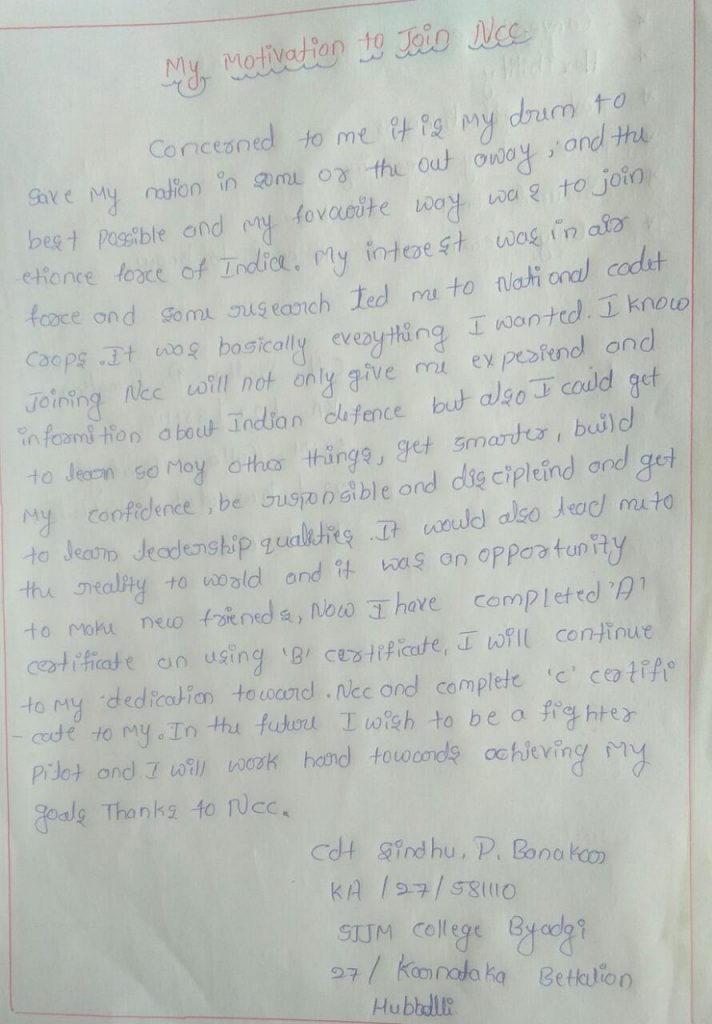 My Motivation to Join Ncc
Concerned to me it is My drem to
Save My nation in some or the out away, and the
best Possible and my favaorite way was to join
etionce force of India. My interest was in air
force and some research led me to National cadet
Crops. It was basically everything I wanted. I know
Joining Ncc will not only give me experiend and
informition about Indian defence but also I could get
to learn so May other things, get smarter, build
My confidence, be responsible and discipleind and get
to learn leadership qualities. It would also lead me to
the reality to world and it was an opportunity
to make new frieneds, Now I have completed 'A'
certificate an using 'B' certificate, I will continue
to My dedication toward. Ncc and complete 'c' certifi
- cate to my. In the future I wish to be a fighter
Pilot and I will work hard towards achieving My
goals Thanks to Ncc.
Cdt Sindhu. P. Banakar
KA / 27 / 581110
SJJM College Byadgi
27 / Karnataka Bettalion
Hubballi